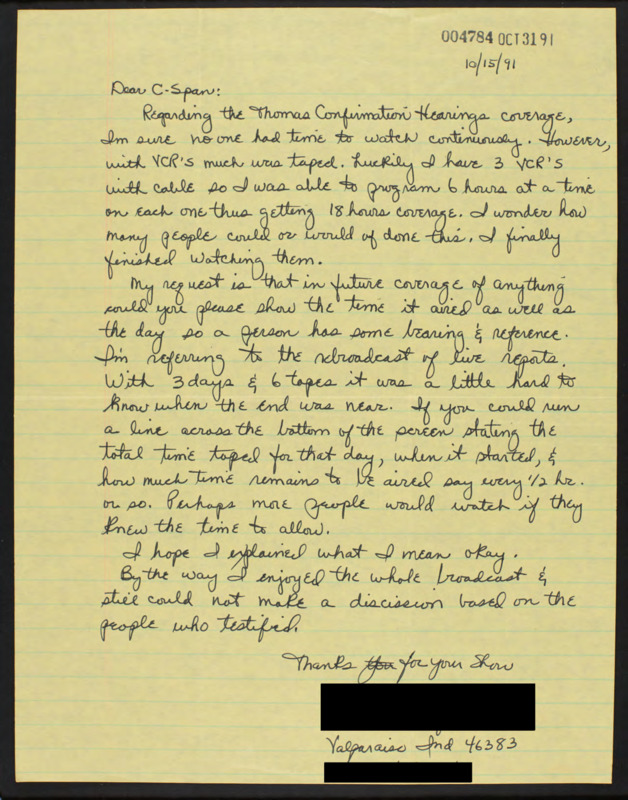 004784 OCT 31 91
10/15/91
Dear C-Span:
Regarding the Thomas Confirmation Hearings coverage,
I'm sure no one had time to watch continuously. However,
with VCR's much was taped. Luckily I have 3 VCR'S
with cable so I was able to program 6 hours at a time
on each one thus getting 18 hours coverage. I wonder how
many people could or would of done this. I finally
finished watching them.
My request is that in future coverage of anything
could you please show the time it aired as well as
the day so a person has some bearing & reference.
I'm referring to the rebroadcast of live reports.
With 3 days & 6 tapes it was a little hard to
know when the end was near. If you could run
a line across the bottom of the screen stating the
total time taped for that day, when it started, &
how much time remains to be aired say every 1/2 hr.
or so. Perhaps more people would watch if they
knew the time to allow.
I hope I explained what I mean okay.
By the way I enjoyed the whole broadcast &
still could not make a discission based on the
people who testified.
Thanks you for your show
Valparaiso Ind 46383